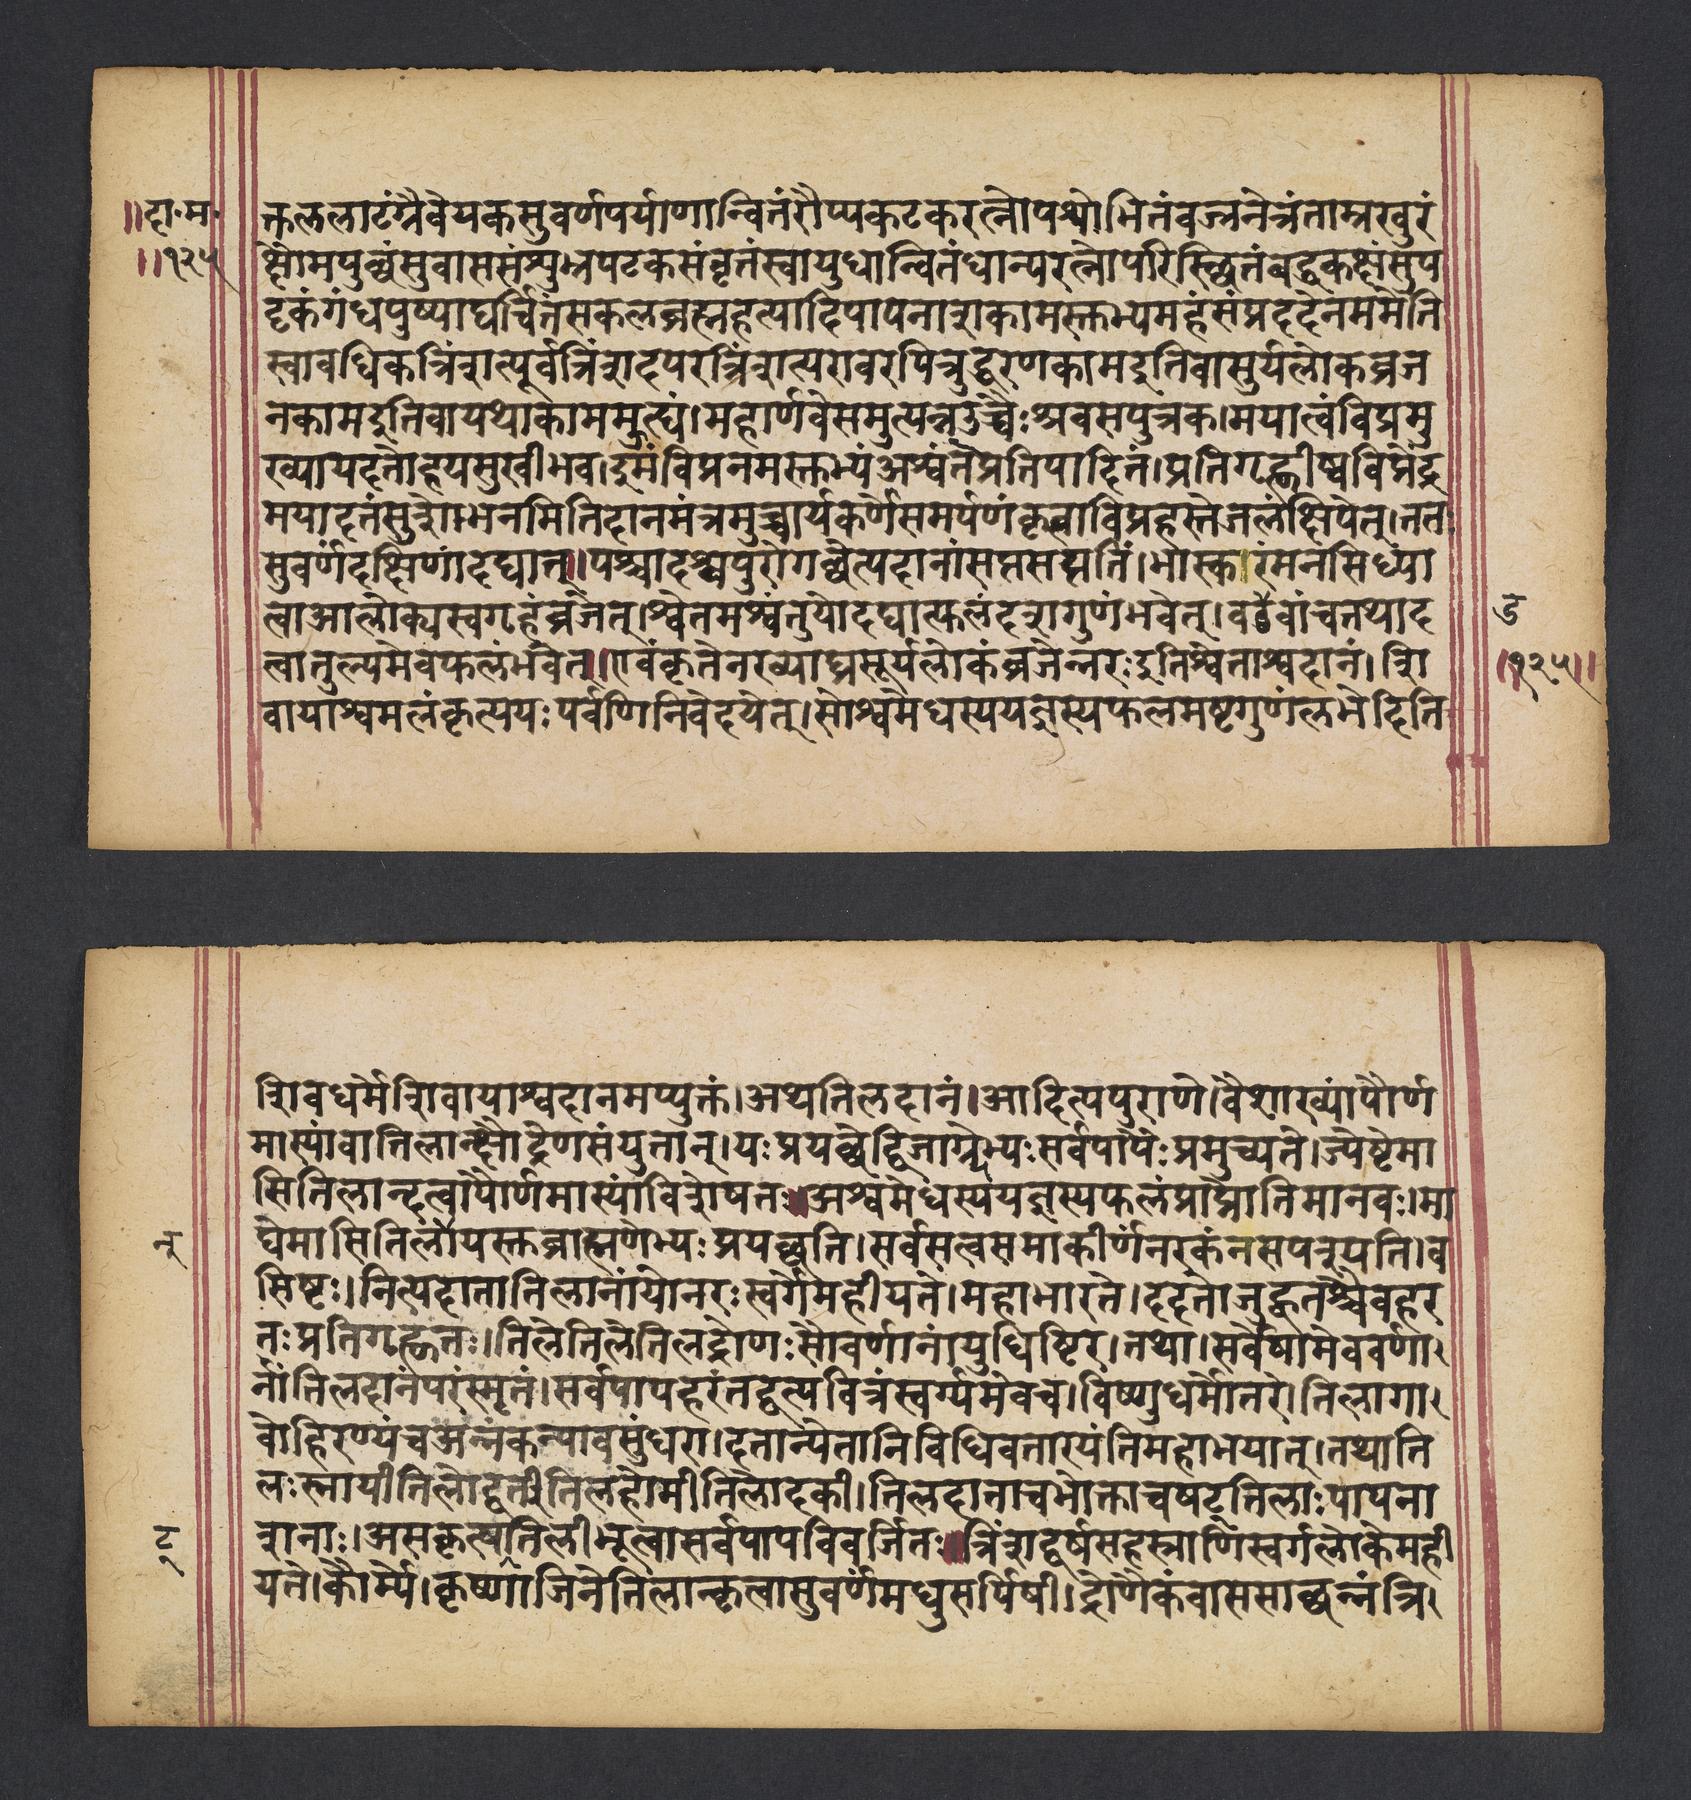 ॥दा॰म॰
॥१२५
क्तललाटंग्रैवेयकसुवर्णपर्याणान्वितंरौप्यकटकरत्नोपशोभितंवज्रनेत्रंताम्रखुरं
क्षौमपुच्छंसुवाससंशुभ्रपटकसंवृतंस्वायुधान्वितंधान्यरत्नोपरिस्छितंबद्धकक्षंसुप
ट्टकंगंधपुष्पाद्यर्चितंसकलब्रह्महत्यादिपापनाशकामस्तुभ्यमहंसंप्रददेनममेति
स्वावधिकत्रिंशत्पूर्वत्रिंशदपरत्रिंशत्परावरपित्रुद्धरणकामइतिवासुर्यलोकव्रज
नकामइतिवायथाकाममुह्यं।महार्णवेसमुत्पन्नउच्चैःश्रवसपुत्रक।मयात्वंविप्रमु
ख्यायदत्तोहयसुखीभव।इमंविप्रनमस्तुभ्यंअश्वंतेप्रतिपादितं।प्रतिगृह्णीष्वविप्रेंद्र
मयादत्तंसुशोभनमितिदानमंत्रमुच्चार्यकर्णेसमर्पणंकृत्वाविप्रहस्तेजलंक्षिपेत्।ततः
सुवर्णंदक्षिणांदद्यात्॥पश्चादश्वपुरोगच्छेत्पदानांसप्तसप्ततिं।भास्करंमनसिध्या
त्वाआलोक्यस्वगृहंव्रजेत्।श्वेतमश्वंतुयोदद्यात्फलंदशगुणंभवेत्।वडवांचतथाद
त्वातुल्यमेवफलंभवेत्॥एवंकृतेनरव्याघ्रसूर्यलोकंव्रजेन्नरःइतिश्वेताश्वदानं।शि
वायाश्वमलंकृत्ययःपर्वणिनिवेदयेत्।सोश्वमेधस्ययज्ञस्यफलमष्टगुणंलभेदिति
ड
॥१२५॥
शिवधर्मेशिवायाश्वदानमप्युक्तं।अथतिलदानं।आदित्यपुराणे।वैशाख्यांपौर्ण
मास्यांवातिलान्क्षौद्रेणसंयुतान्।यःप्रयच्छेद्विजाग्रेभ्यःसर्वपापैःप्रमुच्यते।ज्येष्टेमा
सितिलान्दत्वापौर्णमास्यांविशेषतः॥अश्वमेधस्ययज्ञस्यफलंप्राप्नोतिमानवः।मा
घेमासितिलांयस्तुब्राह्मणेभ्यःप्रयछति।सर्वसत्वसमाकीर्णंनरकंनसपश्यति।व
न्
सिष्टः।नित्यदातातिलानांयोनरःस्वर्गेमहीयते।महाभारते।ददतोजुह्वतश्चैवहर
तःप्रतिगृह्णतः।तिलेतिलेतिलद्रोणःसौवर्णानांयुधिष्टिर।तथा।सर्वेषामेववर्णा
नांतिलदानंपरंस्मृतं।सर्वपापहरंतद्वत्पवित्रंस्वर्ग्यमेवच।विष्णुधर्मोत्तरे।तिलागा
वोहिरण्यंचअन्नंकन्यावसुंधरा।दत्तान्येतानिविधिवत्तारयंतिमहाभयात्।तथाति
लःस्नायीतिलोद्वर्तीतिलहोमीतिलोदकी।तिलदाताचभोक्ताचषट्तिलाःपापना
शनाः।असकृत्षट्तिलीभूत्वासर्वपापविवर्जितः॥त्रिंशद्वर्षसहस्त्राणिस्वर्गलोकेमही
ट्
यते।कौर्म्मे।कृष्णाजिनेतिलान्कृत्वासुवर्णंमधुसर्पिषी।द्रोणैकंवाससाच्छन्नंत्रि